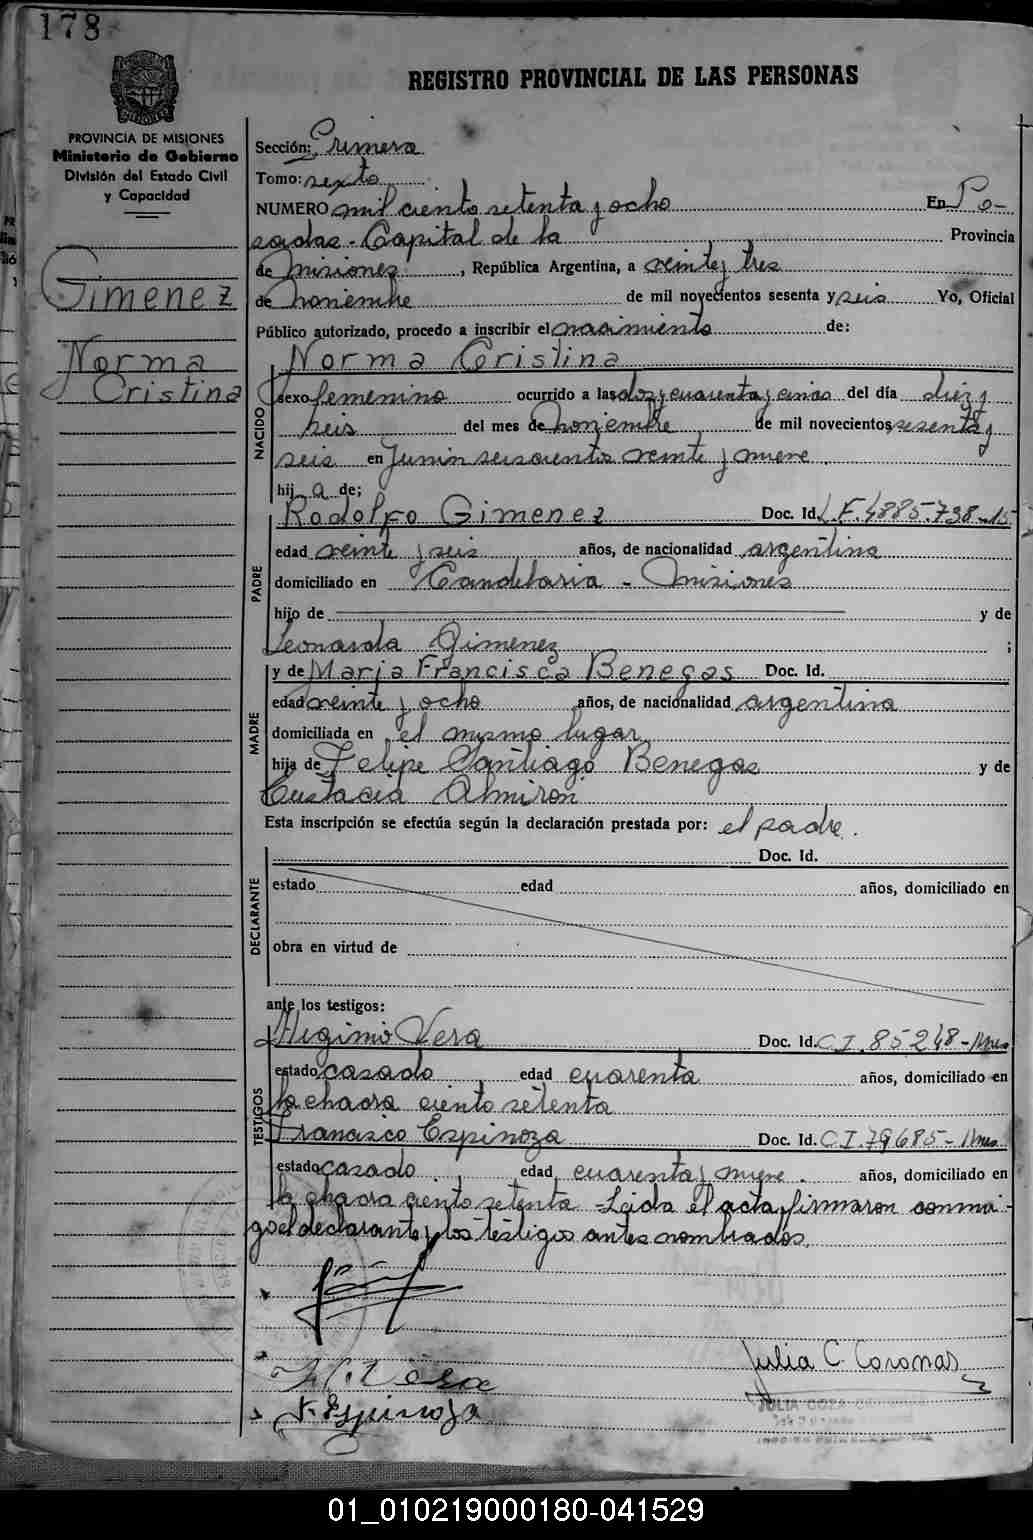 178
REGISTRO PROVINCIAL DE LAS PERSONAS
PROVINCIA DE MISIONES
Ministerio de Gobierno
División del Estado Civil
y Capacidad
Gimenez
Norma
Cristina
Sección: Primera
Tomo: sexto
NUMERO mil ciento setenta y ocho En Po-
sadas - Capital de la Provincia
de Misiones, República Argentina, a veinte y tres
de noviembre de mil novecientos sesenta y seis Yo, Oficial
Público autorizado, procedo a inscribir el nacimiento de:
NACIDO
Norma Cristina
sexo femenino ocurrido a las dos y cuarenta y cinco del día diez y
seis del mes de noviembre de mil novecientos sesenta y
seis en Junin seiscientos veinte y nueve.
hij a de;
PADRE
Rodolfo Gimenez Doc. Id. L.E. 4885.738-15
edad veinte y seis años, de nacionalidad argentina
domiciliado en Candelaria - Misiones
hijo de y de
Leonarda Gimenez ;
MADRE
y de Maria Francisca Benegas Doc. Id.
edad veinte y ocho años, de nacionalidad argentina
domiciliada en el mismo lugar
hija de Felipe Santiago Benegas y de
Eustacia Almiron
Esta inscripción se efectúa según la declaración prestada por: el padre.
DECLARANTE
Doc. Id.
estado edad años, domiciliado en
obra en virtud de
ante los testigos:
TESTIGOS
Higinio Vera Doc. Id. C.I. 85248-Mnes
estado casado edad cuarenta años, domiciliado en
la chacra ciento setenta
Francisco Espinoza Doc. Id. C.I. 79685-Mnes
estado casado edad cuarenta y nueve. años, domiciliado en
la chacra ciento setenta - Leida el acta, firmaron conmi-
go el declarante y los testigos antes nombrados.
Julia C. Coronas
F. Espinoza
01_010219000180-041529